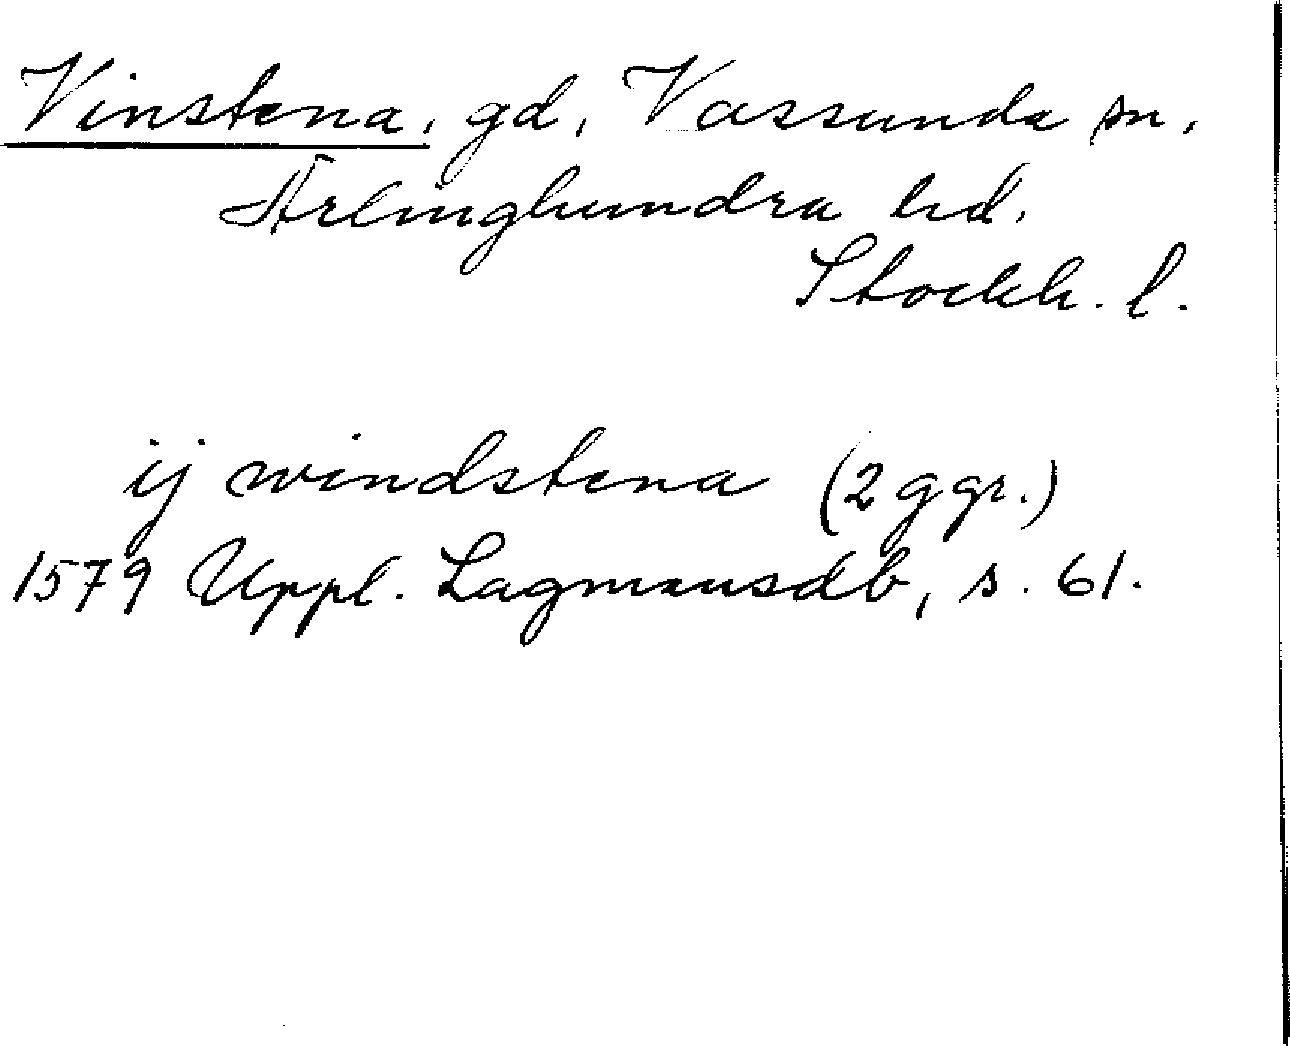 Vinstena, gd, Vassunda sn,
Ärlinghundra hd.
Stockh. l.
ij windstena (2 ggr.)
1579 Uppl. Lagmansdb, s. 61.